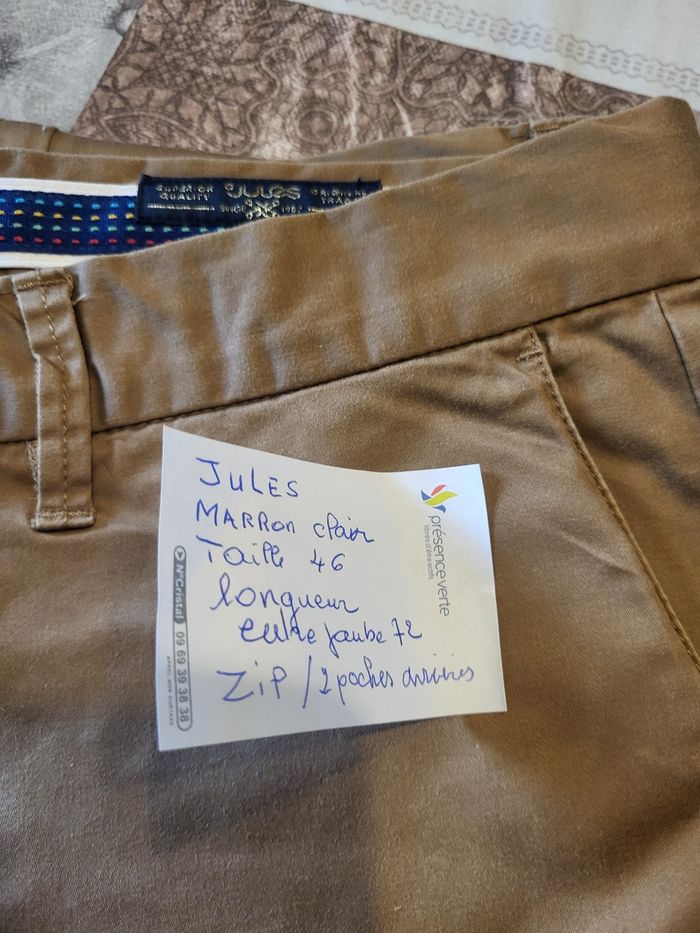 SUPERIOR QUALITY
JULES
ORIGINAL TRADE
SINCE 1987
JULES
MARRON clair
Taille 46
longueur
entre jambe 72
ZIP / 2 poches arrières
présence verte
libres d'être actifs
N°Cristal 09 69 39 38 38
APPEL NON SURTAXÉ